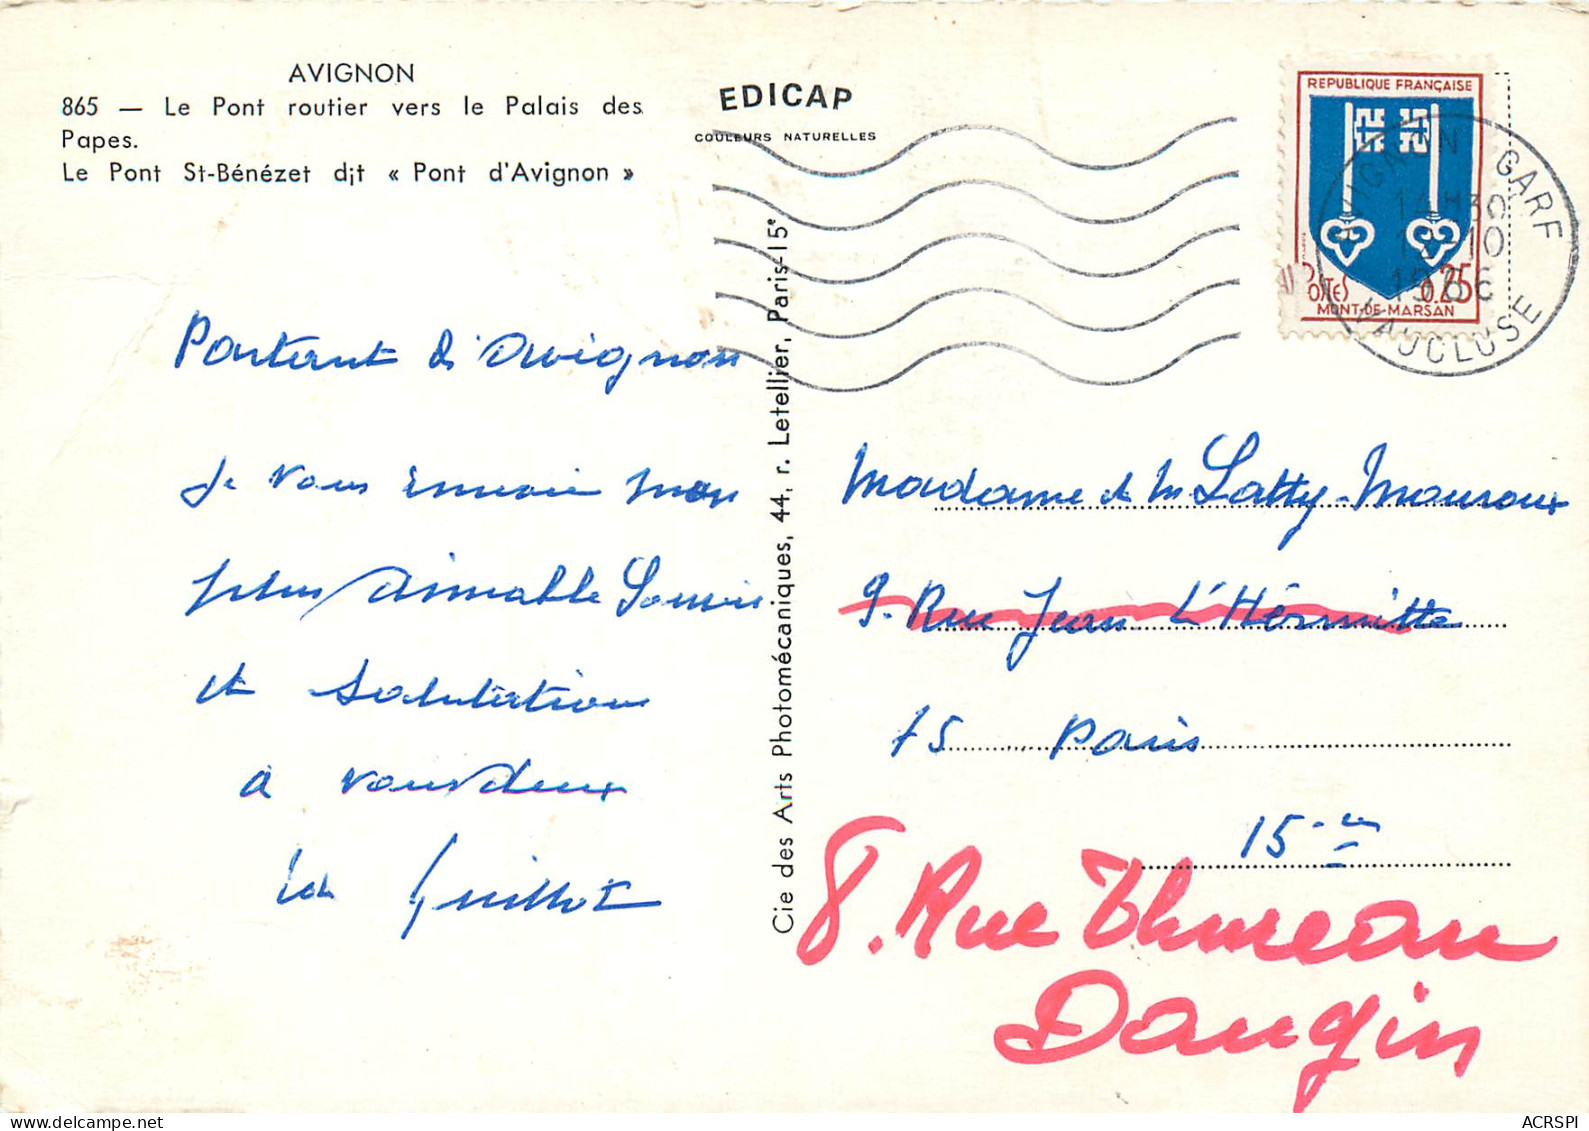 AVIGNON
865 — Le Pont routier vers le Palais des
Papes.
Le Pont St-Bénézet dit « Pont d'Avignon »
EDICAP
COULEURS NATURELLES
REPUBLIQUE FRANÇAISE
POSTES 0.25
MONT-DE-MARSAN
AVIGNON GARE
30
10
1966
VAUCLUSE
Cie des Arts Photomécaniques, 44, r. Letellier, Paris-15e
Partant d'Avignon
Je vous envoie mon
plus aimable Souvenir
et Salutation
a vous deux
Guillot
Madame & M Latty-Mouroux
9. Rue Jean L'Hérmitte
75 Paris
15.me
8. Rue Thureau
Dangin
www.delcampe.net
ACRSPI